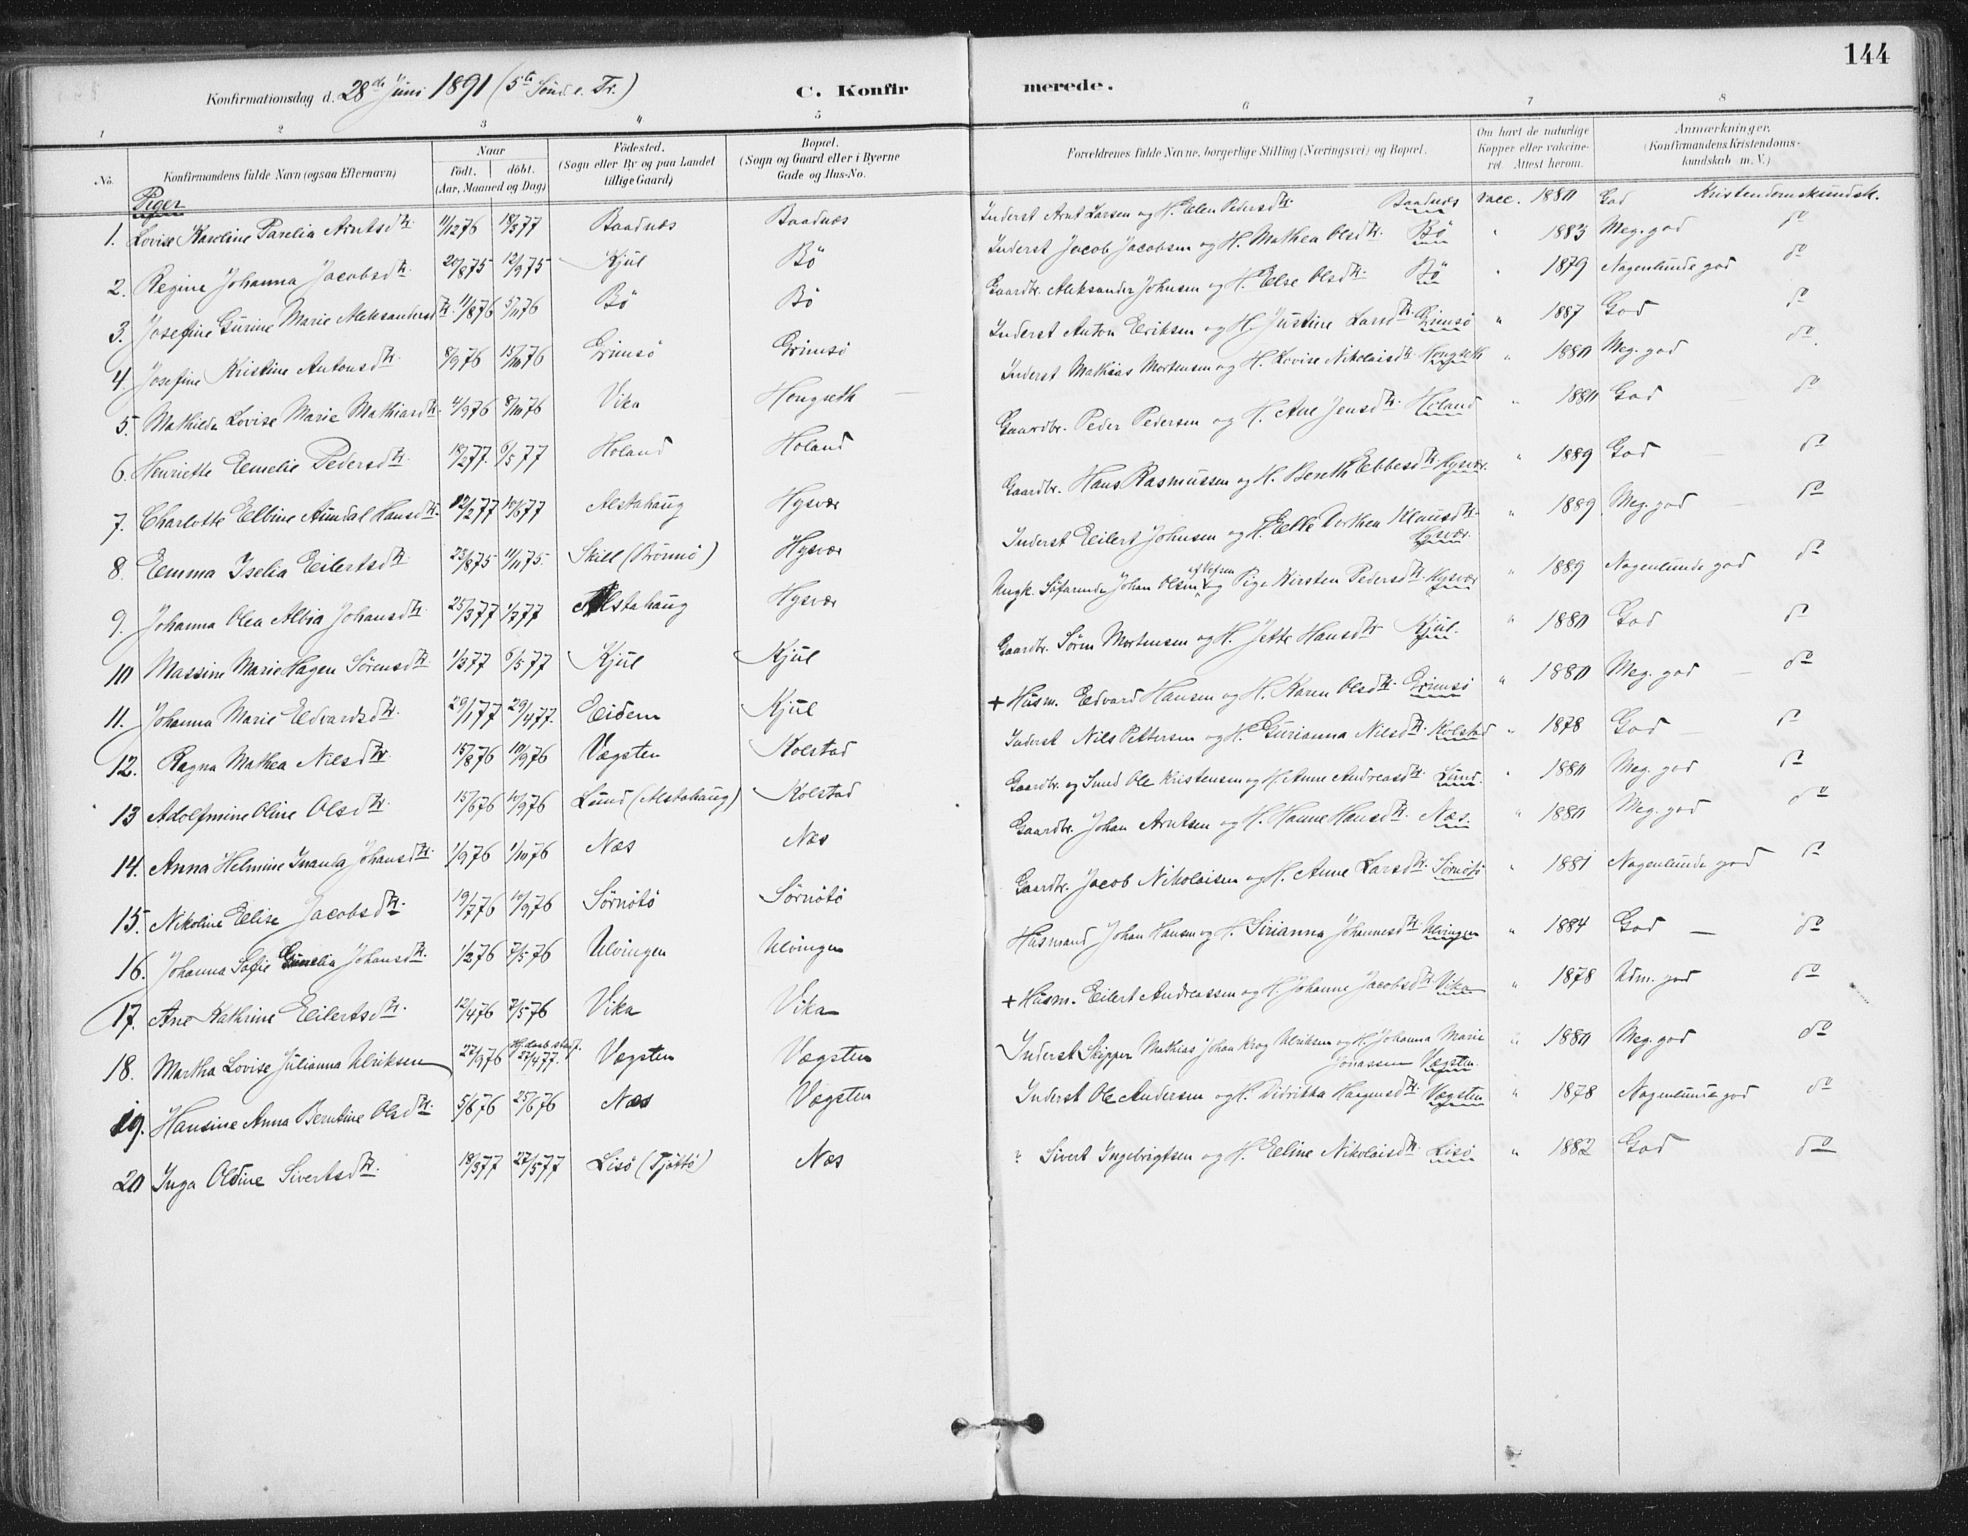 144
Konfirmationsdag d. 28de Juni 1891 (5te Sönd. e. Tr.) C. Konfirmerede.
1 2 3 4 5 6 7 8
No. Konfirmandens fulde Navn (ogsaa Efternavn) Naar födt. döbt. (Aar, Maaned og Dag) Födested. (Sogn eller By og paa Landet tillige Gaard) Bopæl. (Sogn og Gaard eller i Byerne Gade og Hus-No. Forældrenes fulde Navne, borgerlige Stilling (Næringsvei) og Bopæl. Om havt de naturlige Kopper eller vakcineret. Attest herom. Anmærkninger. (Konfirmandens Kristendomskundskab m. V.)
Piger
1. Lovise Karoline Parelia Arntsdtr. 11/1276 18/377 Baadnæs Baadnæs Inderst Arnt Larsen og H. Elen Pedersdtr. Baadnæs vacc. 1880 God Kristendomskundsk.
2. Regine Johanna Jacobsdtr. 20/875 12/975 Kjul Bö Inderst Jacob Jacobsen og H. Mathea Olsdtr. Bö " 1883 Meg. god do
3. Josefine Gurine Marie Aleksandersdtr. 11/876 5/1176 Bö Bö Gaardbr. Aleksander Johnsen og H. Else Olsdtr. Bö " 1879 Nogenlunde god do
4. Josefine Kristine Antonsdtr. 8/976 15/1076 Grimsö Grimsö Inderst Anton Eriksen og H. Justine Larsdtr. Grimsö " 1887 God do
5. Mathilde Lovise Marie Mathiasdtr. 4/976 8/1076 Vika Hongseth Inderst Mathias Mortensen og H. Lovise Nikolaisdtr. Hongseth " 1880 Meg. god do.
6. Henriette Emelie Pedersdtr. 18/277. 6/577 Holand Holand Gaardbr. Peder Pedersen og H. Ane Jensdtr. Holand " 1880 God do
7. Charlotte Elbine Aundal Hansdtr. 12/277 10/677 Alstahaug Hysvær Gaardbr. Hans Rasmussen og H. Bereth Ebbesdtr. Hysvær. " 1889 God do
8. Emma Iselia Eilertsdtr. 23/875 11/1175. Skill (Brönnö) Hysvær Inderst Eilert Johnsen og H. Elle Dorthea Klausdtr. Hysvær. " 1889. Meg. god do
9. Johanna Olea Albia Johansdtr. 25/377 1/777 Alstahaug Hysvær Ungk. Söfarende Johan Olsen af Vefsen og Pige Kirsten Pedersdtr. Hysvær " 1889 Nogenlunde god do
10 Massine Marie Hagen Sørensdtr. 1/377 6/577 Kjul Kjul Gaardbr. Sörn Mortensen og H. Jette Hansdtr Kjul. " 1880 God do
11. Johanna Marie Edvardsdtr. 29/177 29/477. Eidem Kjul + Husm. Edvard Hansen og H. Karen Olsdtr. Grimsö " 1880 Meg. god do
12. Ragna Mathea Nilsdtr. 15/876 10/976 Vægsten Kolstad Inderst Nils Pettersen og H. Gurianna Nilsdtr. Kolstad " 1878 God do
13 Adolfmine Oline Olsdtr. 15/676 10/976 Lund (Alstahaug) Kolstad Gaardbr. og Smed Ole Kristensen og H. Anne Andreasdtr. Lund. " 1880 Meg. god do
14. Anna Helmine Inanda Johansdtr. 1/976 1/1076 Næs Næs Gaardbr. Johan Arntsen og H. Hanne Hansdtr. Næs. " 1880 Meg. god do
15. Nikoline Elise Jacobsdtr. 19/776 10/976 Sörnötö Sörnötö Gaardbr. Jacob Nikolaisen og H. Anne Larsdtr. Sörnötö " 1881 Nogenlunde god do
16. Johanna Sofie Gunelia Johansdtr. 1/276 7/576 Ulvingen Ulvingen Husmand Johan Hansen og H. Sirianna Johannesdtr. Ulvingen " 1884 God do
17. Ane Kathrine Eilertsdtr. 12/476 7/576 Vika Vika + Husm. Eilert Andreassen og H. Johanne Jacobsdtr. Vika " 1878 Udm. god do
18. Martha Lovise Julianna Ulriksen 27/976 Hj.daab stadf. 27/477. Vægsten Vægsten Inderst Skipper Mathias Johan Krog Ulriksen og H. Johanna Marie Jonassen Vægsten. " 1880 Meg. god do
19. Hansine Anna Berntine Olsdtr. 5/676 25/676 Næs Vægsten Inderst Ole Andersen og H. Didrikka Haagensdtr. Vægsten " 1878 Nogenlunde god do
20 Inga Oldine Sivertsdtr. 18/377 27/577 Lisö (Tjöttö) Næs " Sivert Ingebrigtsen og H. Eline Nikolaisdtr. Lisö " 1882 God do